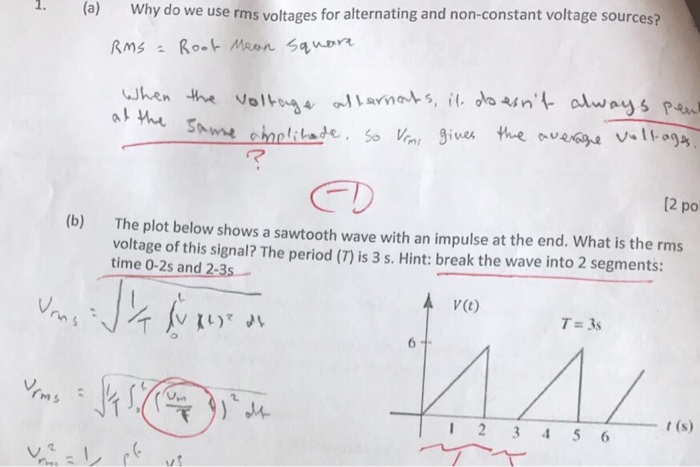 1. (a) Why do we use rms voltages for alternating and non-constant voltage sources?
RMS = Root Mean Square
When the voltage alternats, it doesn't always pea
at the same amplitude. So Vrms gives the average voltage.
?
-1
[2 po
(b) The plot below shows a sawtooth wave with an impulse at the end. What is the rms
voltage of this signal? The period (T) is 3 s. Hint: break the wave into 2 segments:
time 0-2s and 2-3s
Vrms = √ 1/T ∫₀ᵗ V(t)² dt
V(t)
T = 3s
6
Vrms = √ 1/T ∫₀ᵗ (Vm/T t)² dt
1 2 3 4 5 6 t (s)